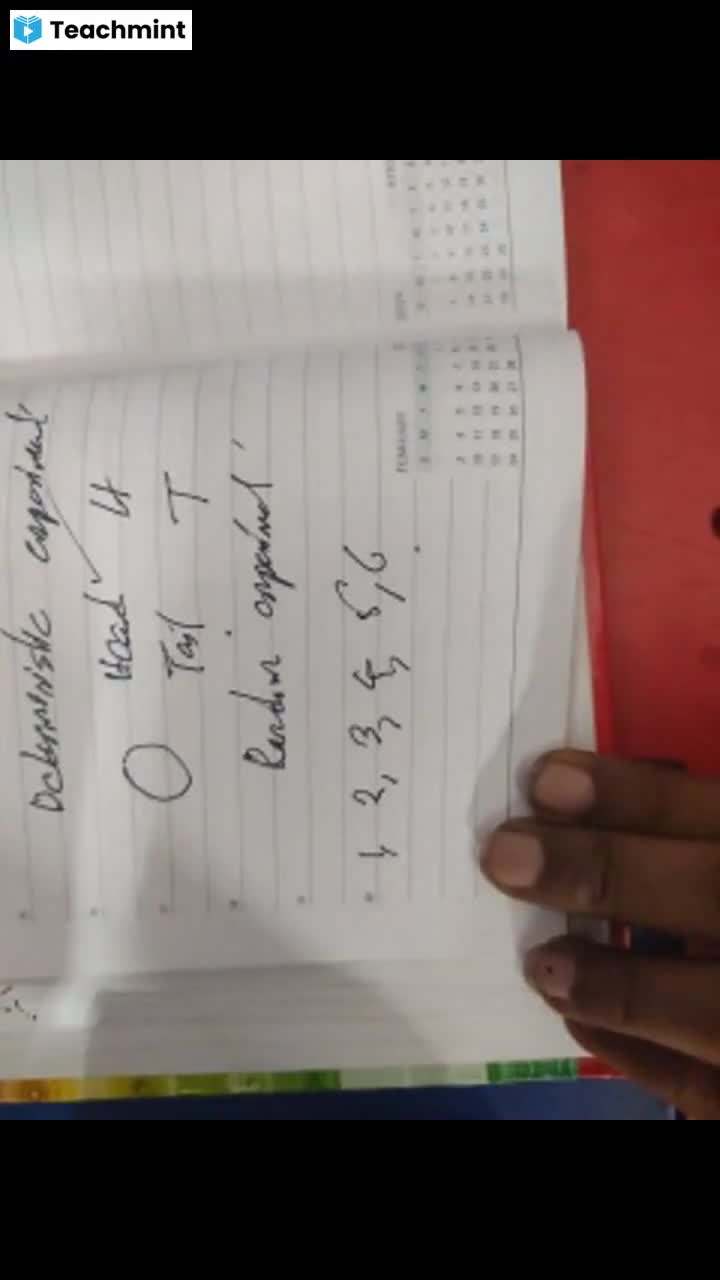 Teachmint
Deterministic experiment
Head H
Tail T
Random experiment
1, 2, 3, 4, 5, 6
FEBRUARY